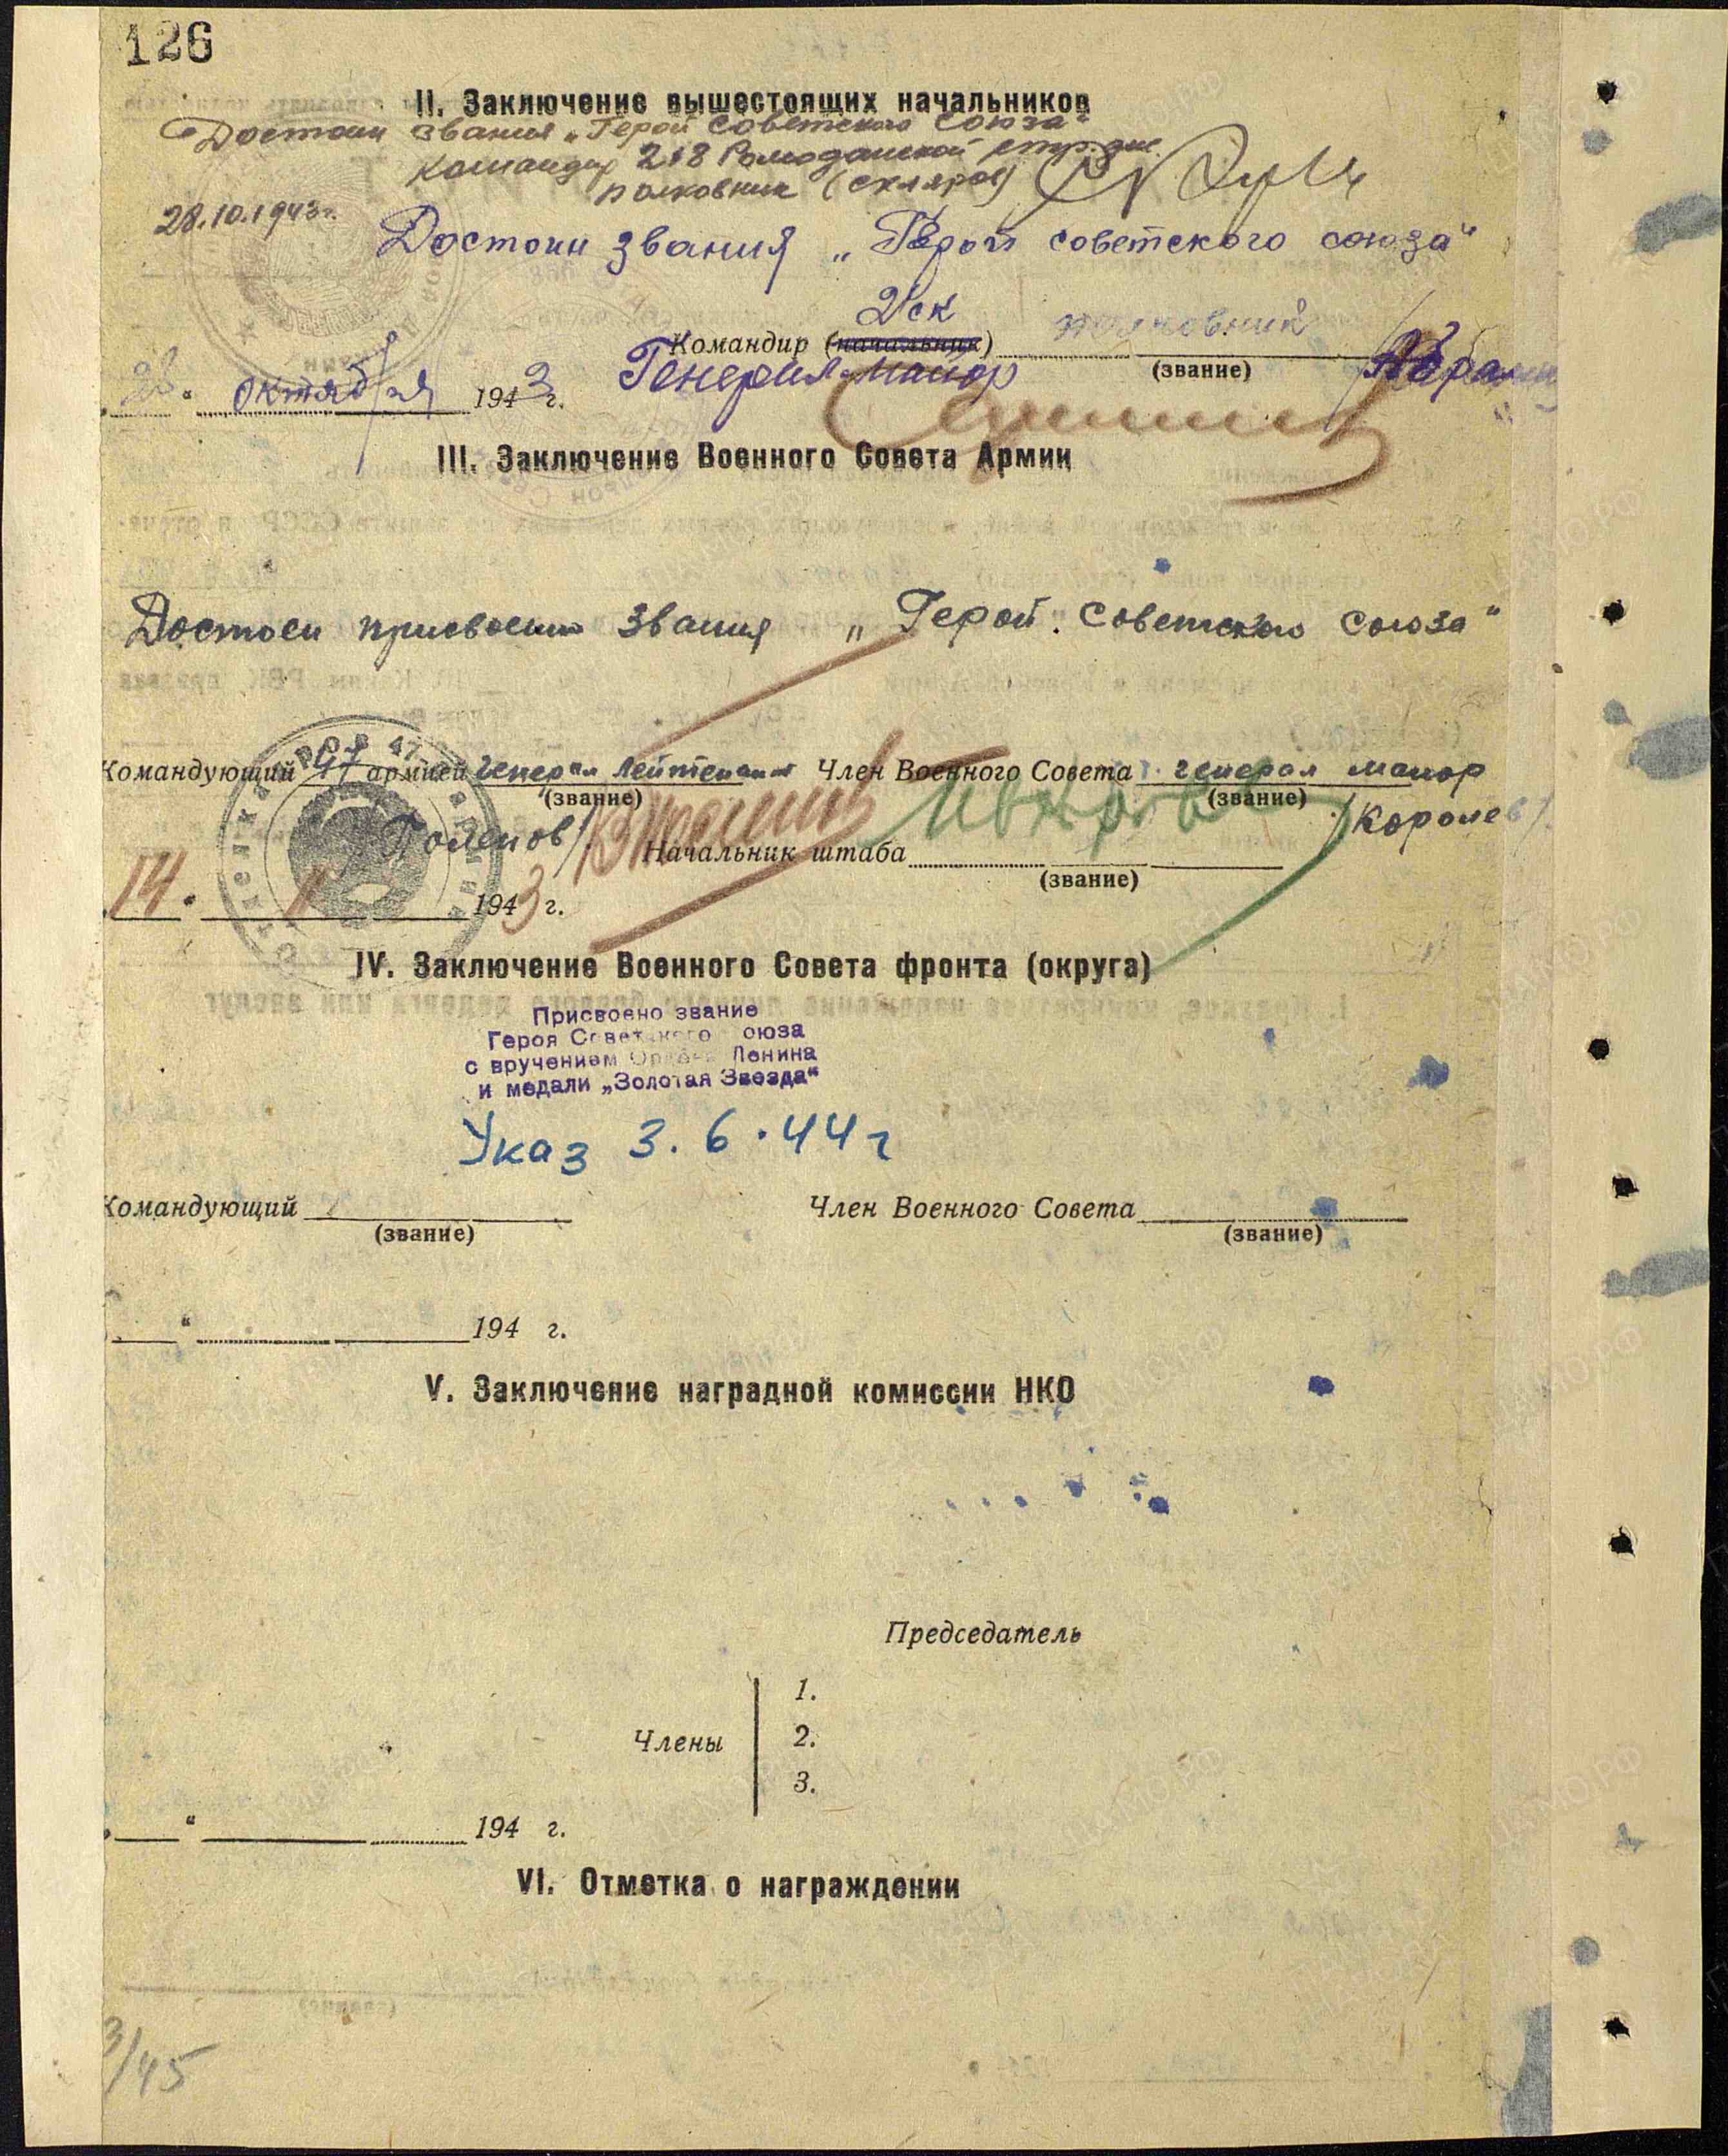 126
II. Заключение вышестоящих начальников
Достоин звания „Герой Советского Союза“
Командир 218 Ромоданской стр. див.
полковник (Скляров)
28.10.1943г.
Достоин звания „Герой советского союза“
2 ск
Командир (начальник) полковник
(звание)
Генерал-майор
28 " октября 1943 г.
III. Заключение Военного Совета Армии
Достоен присвоения звания „Герой Советского Союза“
Командующий 47 армией генерал лейтенант Член Военного Совета генерал майор
(звание) (звание)
/Королев/
Начальник штаба
(звание)
14 " 11 1943 г.
IV. Заключение Военного Совета фронта (округа)
Присвоено звание
Героя Советского Союза
с вручением Ордена Ленина
и медали „Золотая Звезда“
Указ 3.6.44г
Командующий Член Военного Совета
(звание) (звание)
" 194 г.
V. Заключение наградной комиссии НКО
Председатель
1.
Члены 2.
3.
" 194 г.
VI. Отметка о награждении
3/45